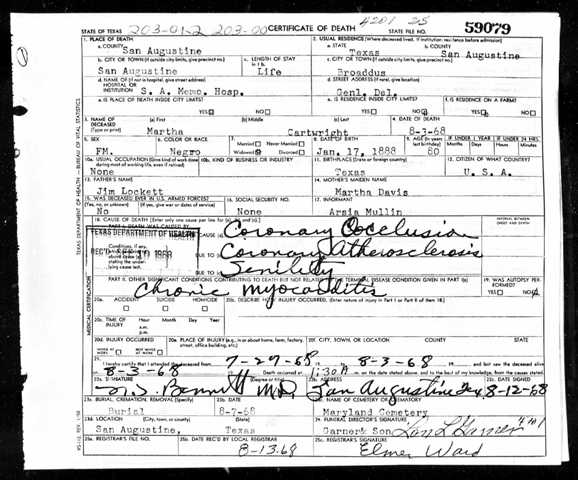 4201 25
STATE OF TEXAS 203-01-2 203-00 CERTIFICATE OF DEATH STATE FILE NO. 59079
TEXAS DEPARTMENT OF HEALTH — BUREAU OF VITAL STATISTICS
1. PLACE OF DEATH 2. USUAL RESIDENCE (Where deceased lived. If institution: residence before admission)
a. COUNTY San Augustine a. STATE Texas b. COUNTY San Augustine
b. CITY OR TOWN (If outside city limits, give precinct no.) c. LENGTH OF STAY in 1 b. c. CITY OR TOWN (If outside city limits, give precinct no.)
San Augustine Life Broaddus
d. NAME OF (If not in hospital, give street address) HOSPITAL OR INSTITUTION d. STREET ADDRESS (If rural, give location)
S. A. Memo. Hosp. Genl. Del.
e. IS PLACE OF DEATH INSIDE CITY LIMITS? e. IS RESIDENCE INSIDE CITY LIMITS? f. IS RESIDENCE ON A FARM?
YES NO YES NO YES NO
3. NAME OF DECEASED (Type or print) (a) First (b) Middle (c) Last 4. DATE OF DEATH
Martha Cartwright 8-3-68
5. SEX 6. COLOR OR RACE 7. Married Never Married 8. DATE OF BIRTH 9. AGE (In years last birthday) IF UNDER 1 YEAR IF UNDER 24 HRS.
FM. Negro Widowed Divorced Jan. 17, 1888 80 Months Days Hours Min.
10a. USUAL OCCUPATION (Give kind of work done during most of working life, even if retired) 10b. KIND OF BUSINESS OR INDUSTRY 11. BIRTHPLACE (State or foreign country) 12. CITIZEN OF WHAT COUNTRY?
None Texas U. S. A.
13. FATHER'S NAME 14. MOTHER'S MAIDEN NAME
Jim Lockett Martha Davis
15. WAS DECEASED EVER IN U.S. ARMED FORCES? 16. SOCIAL SECURITY NO. 17. INFORMANT
(Yes, no, or unknown) (If yes, give war or dates of service)
No None Arsia Mullin
18. CAUSE OF DEATH [Enter only one cause per line for (a), (b), and (c).] INTERVAL BETWEEN ONSET AND DEATH
PART I. DEATH WAS CAUSED BY: Coronary Occlusion
TEXAS DEPARTMENT OF HEALTH
REC'D SEP 10 1968
Conditions, if any, DUE TO Coronary Atherosclerosis
stating the underlying cause last. DUE TO Senility
PART II. OTHER SIGNIFICANT CONDITIONS CONTRIBUTING TO DEATH BUT NOT RELATED TO THE TERMINAL DISEASE CONDITION GIVEN IN PART I(a) 19. WAS AUTOPSY PERFORMED?
Chronic Myocarditis YES NO
MEDICAL CERTIFICATION
20a. ACCIDENT SUICIDE HOMICIDE 20b. DESCRIBE HOW INJURY OCCURRED. (Enter nature of injury in Part I or Part II of item 18.)
20c. TIME OF INJURY Hour Month Day Year
a.m.
p.m.
20d. INJURY OCCURRED 20e. PLACE OF INJURY (e.g., in or about home, farm, factory, street, office building, etc.) 20f. CITY, TOWN, OR LOCATION COUNTY STATE
WHILE AT WORK NOT WHILE AT WORK
21. I hereby certify that I attended the deceased from 7-27-68 8-3-68 and last saw the deceased alive
8-3-68 Death occurred at 1:30 A m. on the date stated above, and to the best of my knowledge, from the causes stated.
22a. SIGNATURE (Degree or title) 22b. ADDRESS 22c. DATE SIGNED
Bennett M.D. San Augustine Tex 8-12-68
23a. BURIAL, CREMATION, REMOVAL (Specify) 23b. DATE 23c. NAME OF CEMETERY OR CREMATORY
Burial 8-7-68 Maryland Cemetery
23d. LOCATION (City, town, or county) (State) 24. FUNERAL DIRECTOR'S SIGNATURE
San Augustine, Texas Garner & Son
25a. REGISTRAR'S FILE NO. 25b. DATE REC'D BY LOCAL REGISTRAR 25c. REGISTRAR'S SIGNATURE
8-13-68 Elmer Ward